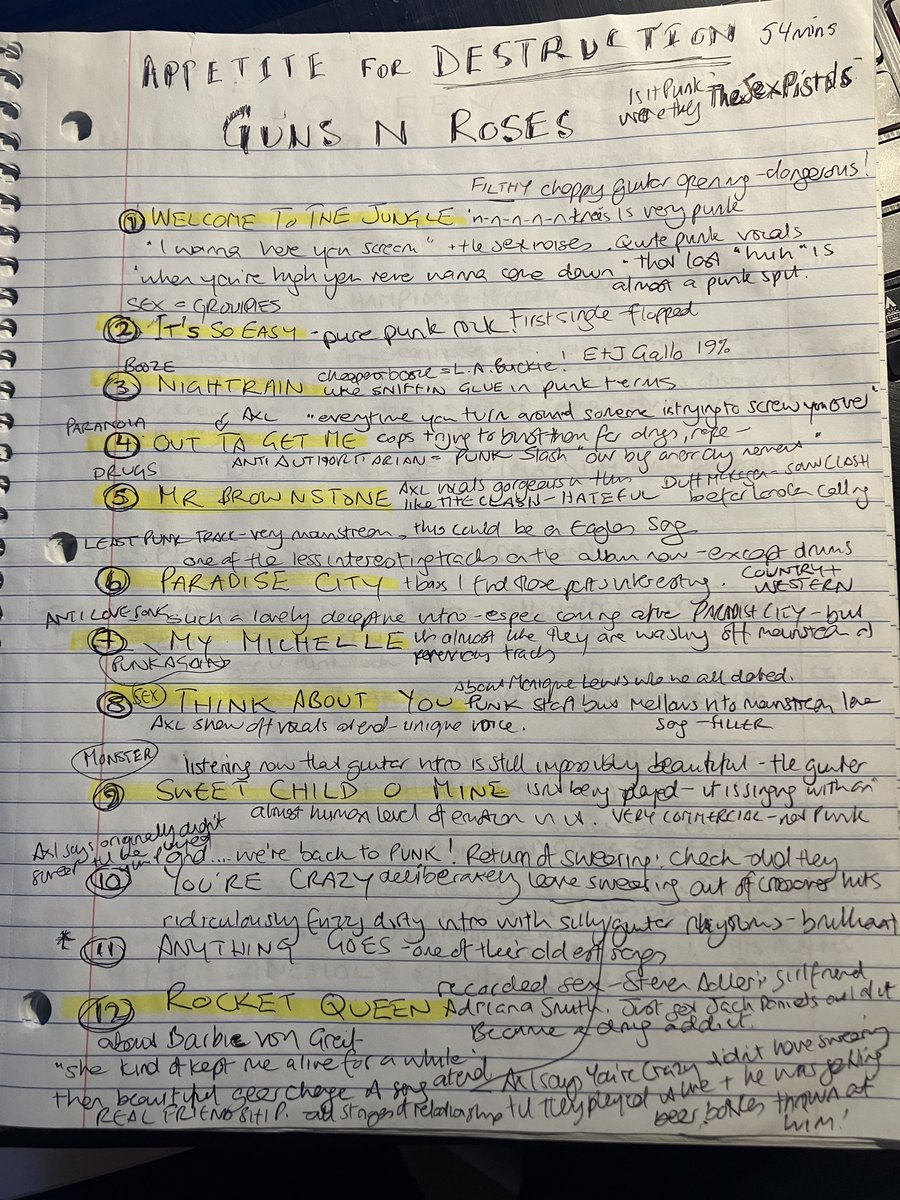 APPETITE FOR DESTRUCTION 54 mins
Is it Punk
were they The Sex Pistols
GUNS N ROSES
FILTHY choppy guitar opening - dangerous!
① WELCOME TO THE JUNGLE 'n-n-n-n-n-knees is very punk
"I wanna here you scream" + the sex noises. Quite punk vocals
"when you're high you never wanna come down" that last "huh" is
almost a punk spit.
SEX = GROUPIES
② IT'S SO EASY - pure punk rock First single - flopped
BOOZE
cheapest booze = L.A. Buckie! E+J Gallo 19%
③ NIGHTRAIN like SNIFFIN GLUE in punk terms
PARANOIA AXL "everytime you turn around someone is trying to screw you over"
④ OUT TA GET ME cops trying to bust them for drugs, rape -
ANTI AUTHORITARIAN = PUNK Slash "our big anarchy
DRUGS
⑤ MR BROWNSTONE AXL vocals gorgeous in this Duff McKagan - saw CLASH
like THE CLASH - HATEFUL before London Calling
LEAST PUNK TRACK - very mainstream, this could be a Eagles song
one of the less interesting tracks on the album now - except drums
⑥ PARADISE CITY + bass I find those parts interesting. COUNTRY + WESTERN
ANTI LOVE SONG such a lovely deceptive intro - espec coming after PARADISE CITY - but
⑦ MY MICHELLE it's almost like they are washing off mainstream of
previous track
PUNK AGAIN
About Monique Lewis who we all dated.
⑧ SEX THINK ABOUT YOU PUNK start but mellows into mainstream love
AXL show off vocals at end - unique voice. song - FILLER
MONSTER
listening now that guitar intro is still impossibly beautiful - the guitar
⑨ SWEET CHILD O MINE isn't being played - it is singing with an
almost human level of emotion in it. VERY COMMERCIAL - not Punk
Axl says originally didn't
sweet to be played
And.... we're back to PUNK! Return of swearing! Check did they
⑩ YOU'RE CRAZY deliberately leave swearing out of crossover hits
ridiculously fuzzy dirty intro with silly guitar rhythms - brilliant
* ⑪ ANYTHING GOES - one of their oldest songs
recorded sex - Steven Adler's girlfriend
⑫ ROCKET QUEEN Adriana Smith. Just sex Jack Daniels
Became a drug addict.
about Barbie von Greif
"she kind of kept me alive for a while"
then beautiful gear change of song at end
REAL FRIENDSHIP. and relationship
Axl says You're Crazy didn't have swearing
til they played it live + he was getting
beer bottles thrown at
him!